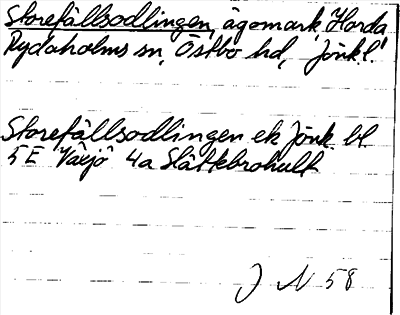 Storefållsodlingen, ägomark, Horda
Rydaholms sn, Östbo hd, Jönk. l.
Storefållsodlingen ek Jönk. bl.
5 E Växjö 4a Slättebrohult
J N 58